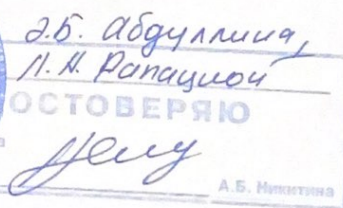 Э.Б. Абдуллина,
Л.А. Рапацкой
ОСТОВЕРЯЮ
А.Б. Никитина